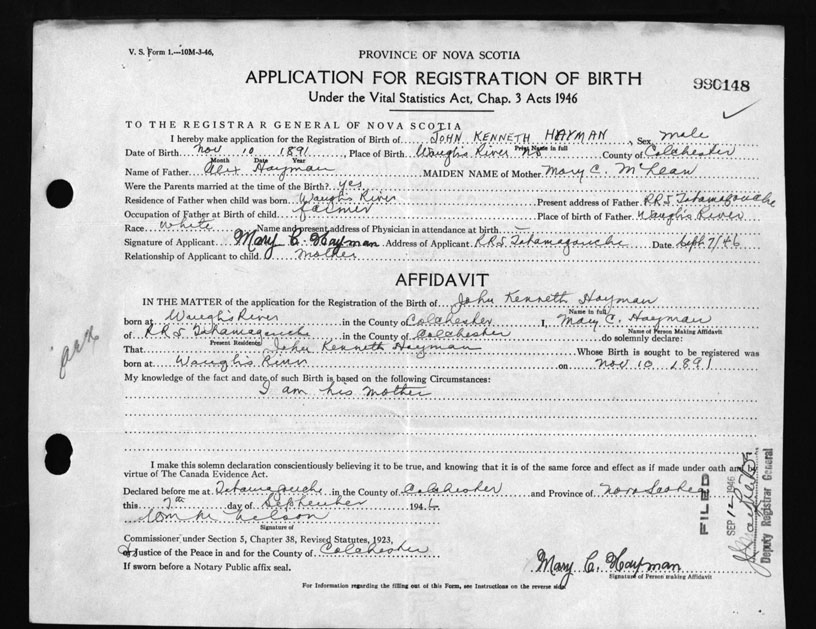 V. S. Form 1.—10M-3-46.
PROVINCE OF NOVA SCOTIA
APPLICATION FOR REGISTRATION OF BIRTH
Under the Vital Statistics Act, Chap. 3 Acts 1946
990148
TO THE REGISTRAR GENERAL OF NOVA SCOTIA
I hereby make application for the Registration of Birth of JOHN KENNETH HAYMAN, Sex male
Print Name in full
Date of Birth Nov 10 1891, Place of Birth Waugh's River NS County of Colchester
Month Date Year
Name of Father Alex Hayman MAIDEN NAME of Mother Mary C. McLean
Were the Parents married at the time of the Birth? yes
Residence of Father when child was born Waugh's River Present address of Father RR5 Tatamagouche
Occupation of Father at Birth of child farmer Place of birth of Father Waugh's River
Race White Name and present address of Physician in attendance at birth —
Signature of Applicant Mary C. Hayman Address of Applicant RR5 Tatamagouche Date Sept 7/46
Relationship of Applicant to child mother
AFFIDAVIT
IN THE MATTER of the application for the Registration of the Birth of John Kenneth Hayman
Name in full
born at Waugh's River in the County of Colchester I, Mary C. Hayman
Name of Person Making Affidavit
of RR5 Tatamagouche in the County of Colchester do solemnly declare:
Present Residence
That John Kenneth Hayman Whose Birth is sought to be registered was
born at Waugh's River on Nov 10 1891
My knowledge of the fact and date of such Birth is based on the following Circumstances:
I am his mother
I make this solemn declaration conscientiously believing it to be true, and knowing that it is of the same force and effect as if made under oath and by
virtue of The Canada Evidence Act.
Declared before me at Tatamagouche in the County of Colchester and Province of Nova Scotia
this 7th day of September 1946
Wm M Nelson
Signature of
Commissioner under Section 5, Chapter 38, Revised Statutes, 1923,
or Justice of the Peace in and for the County of Colchester
If sworn before a Notary Public affix seal.
Mary C. Hayman
Signature of Person making Affidavit
For Information regarding the filling out of this Form, see Instructions on the reverse side.
FILED
SEP 12 1946
Deputy Registrar General